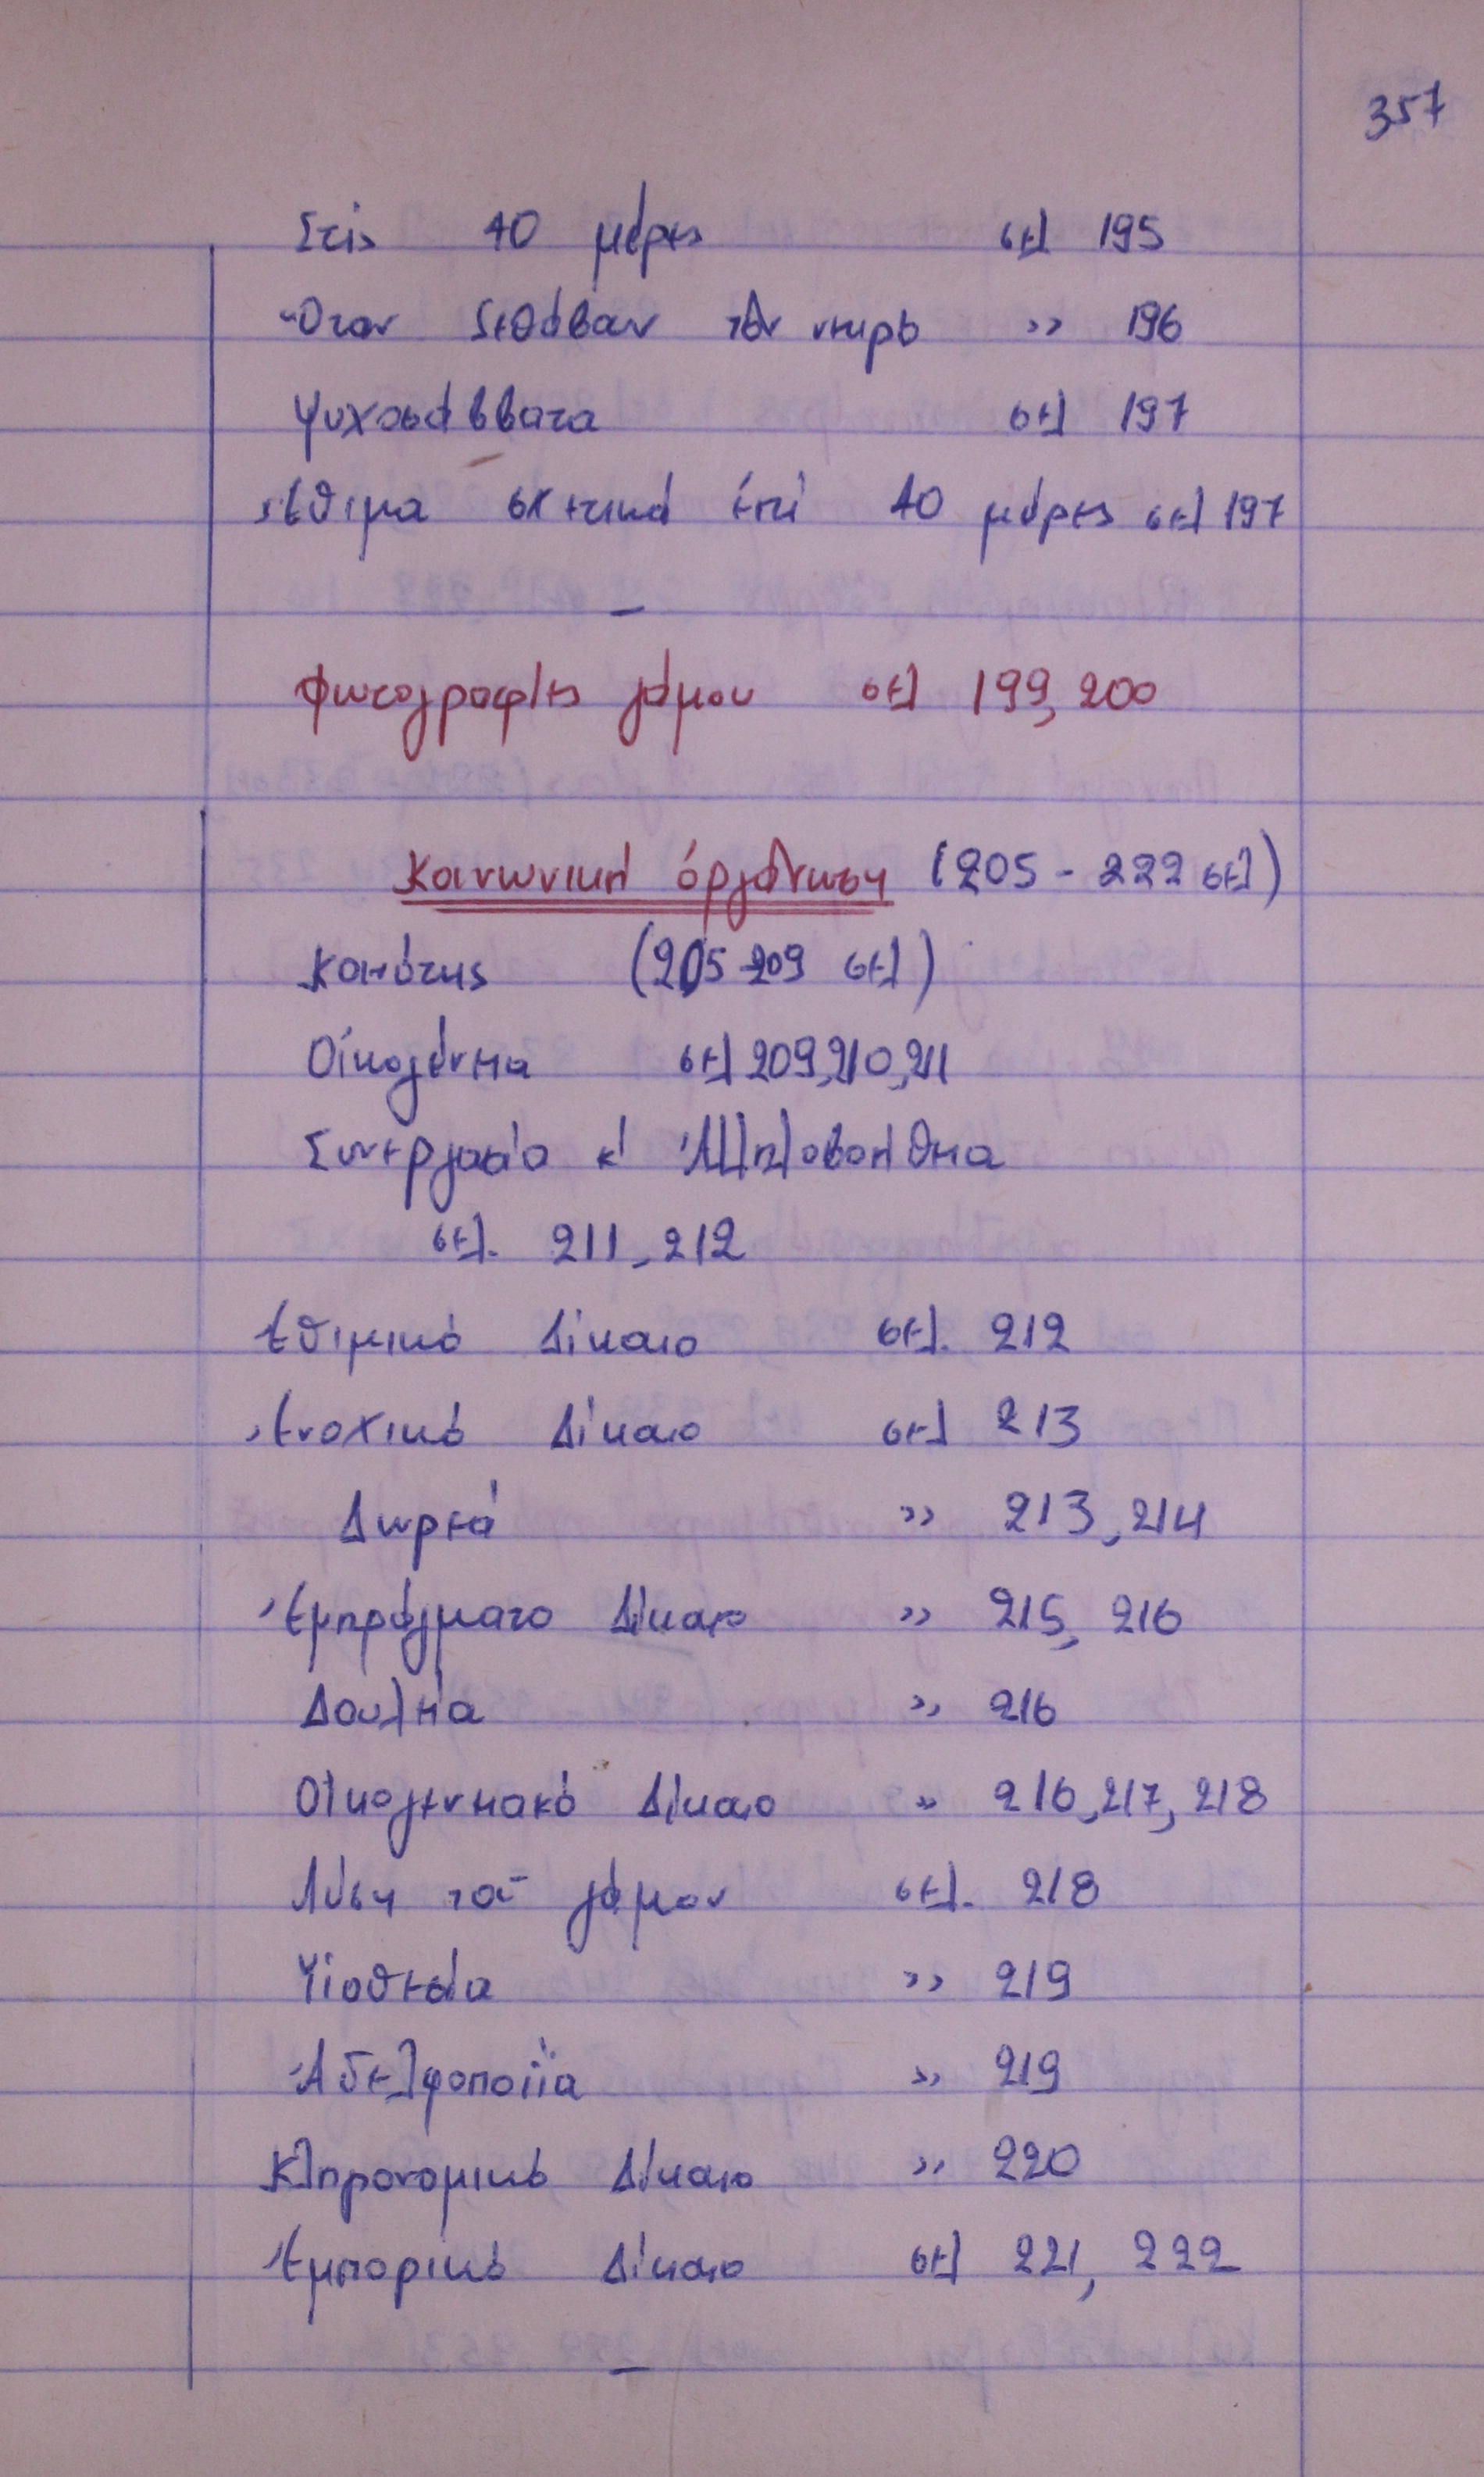 357
Στίς 40 μέρες σελ 195
Ὅταν ξεθάβαν τὸν νεκρό » 196
Ψυχοσάββατα σελ 197
Ἔθιμα σχετικά ἐπί 40 μέρες σελ 197
—
Φωτογραφίες γάμου σελ 199, 200
Κοινωνική ὀργάνωση (205 - 222 σελ)
Κοινότης (205-209 σελ)
Οἰκογένεια σελ 209, 210, 211
Συνεργασία κ' Ἀλληλοβοήθεια
σελ. 211, 212
Ἐθιμικό Δίκαιο σελ. 212
Ἐνοχικό Δίκαιο σελ 213
Δωρεά » 213, 214
Ἐμπράγματο Δίκαιο » 215, 216
Δουλεία » 216
Οἰκογενειακό Δίκαιο » 216, 217, 218
Λύση τοῦ γάμου σελ. 218
Υἱοθεσία » 219
Ἀδελφοποιΐα » 219
Κληρονομικό Δίκαιο » 220
Ἐμπορικό Δίκαιο σελ 221, 222
—